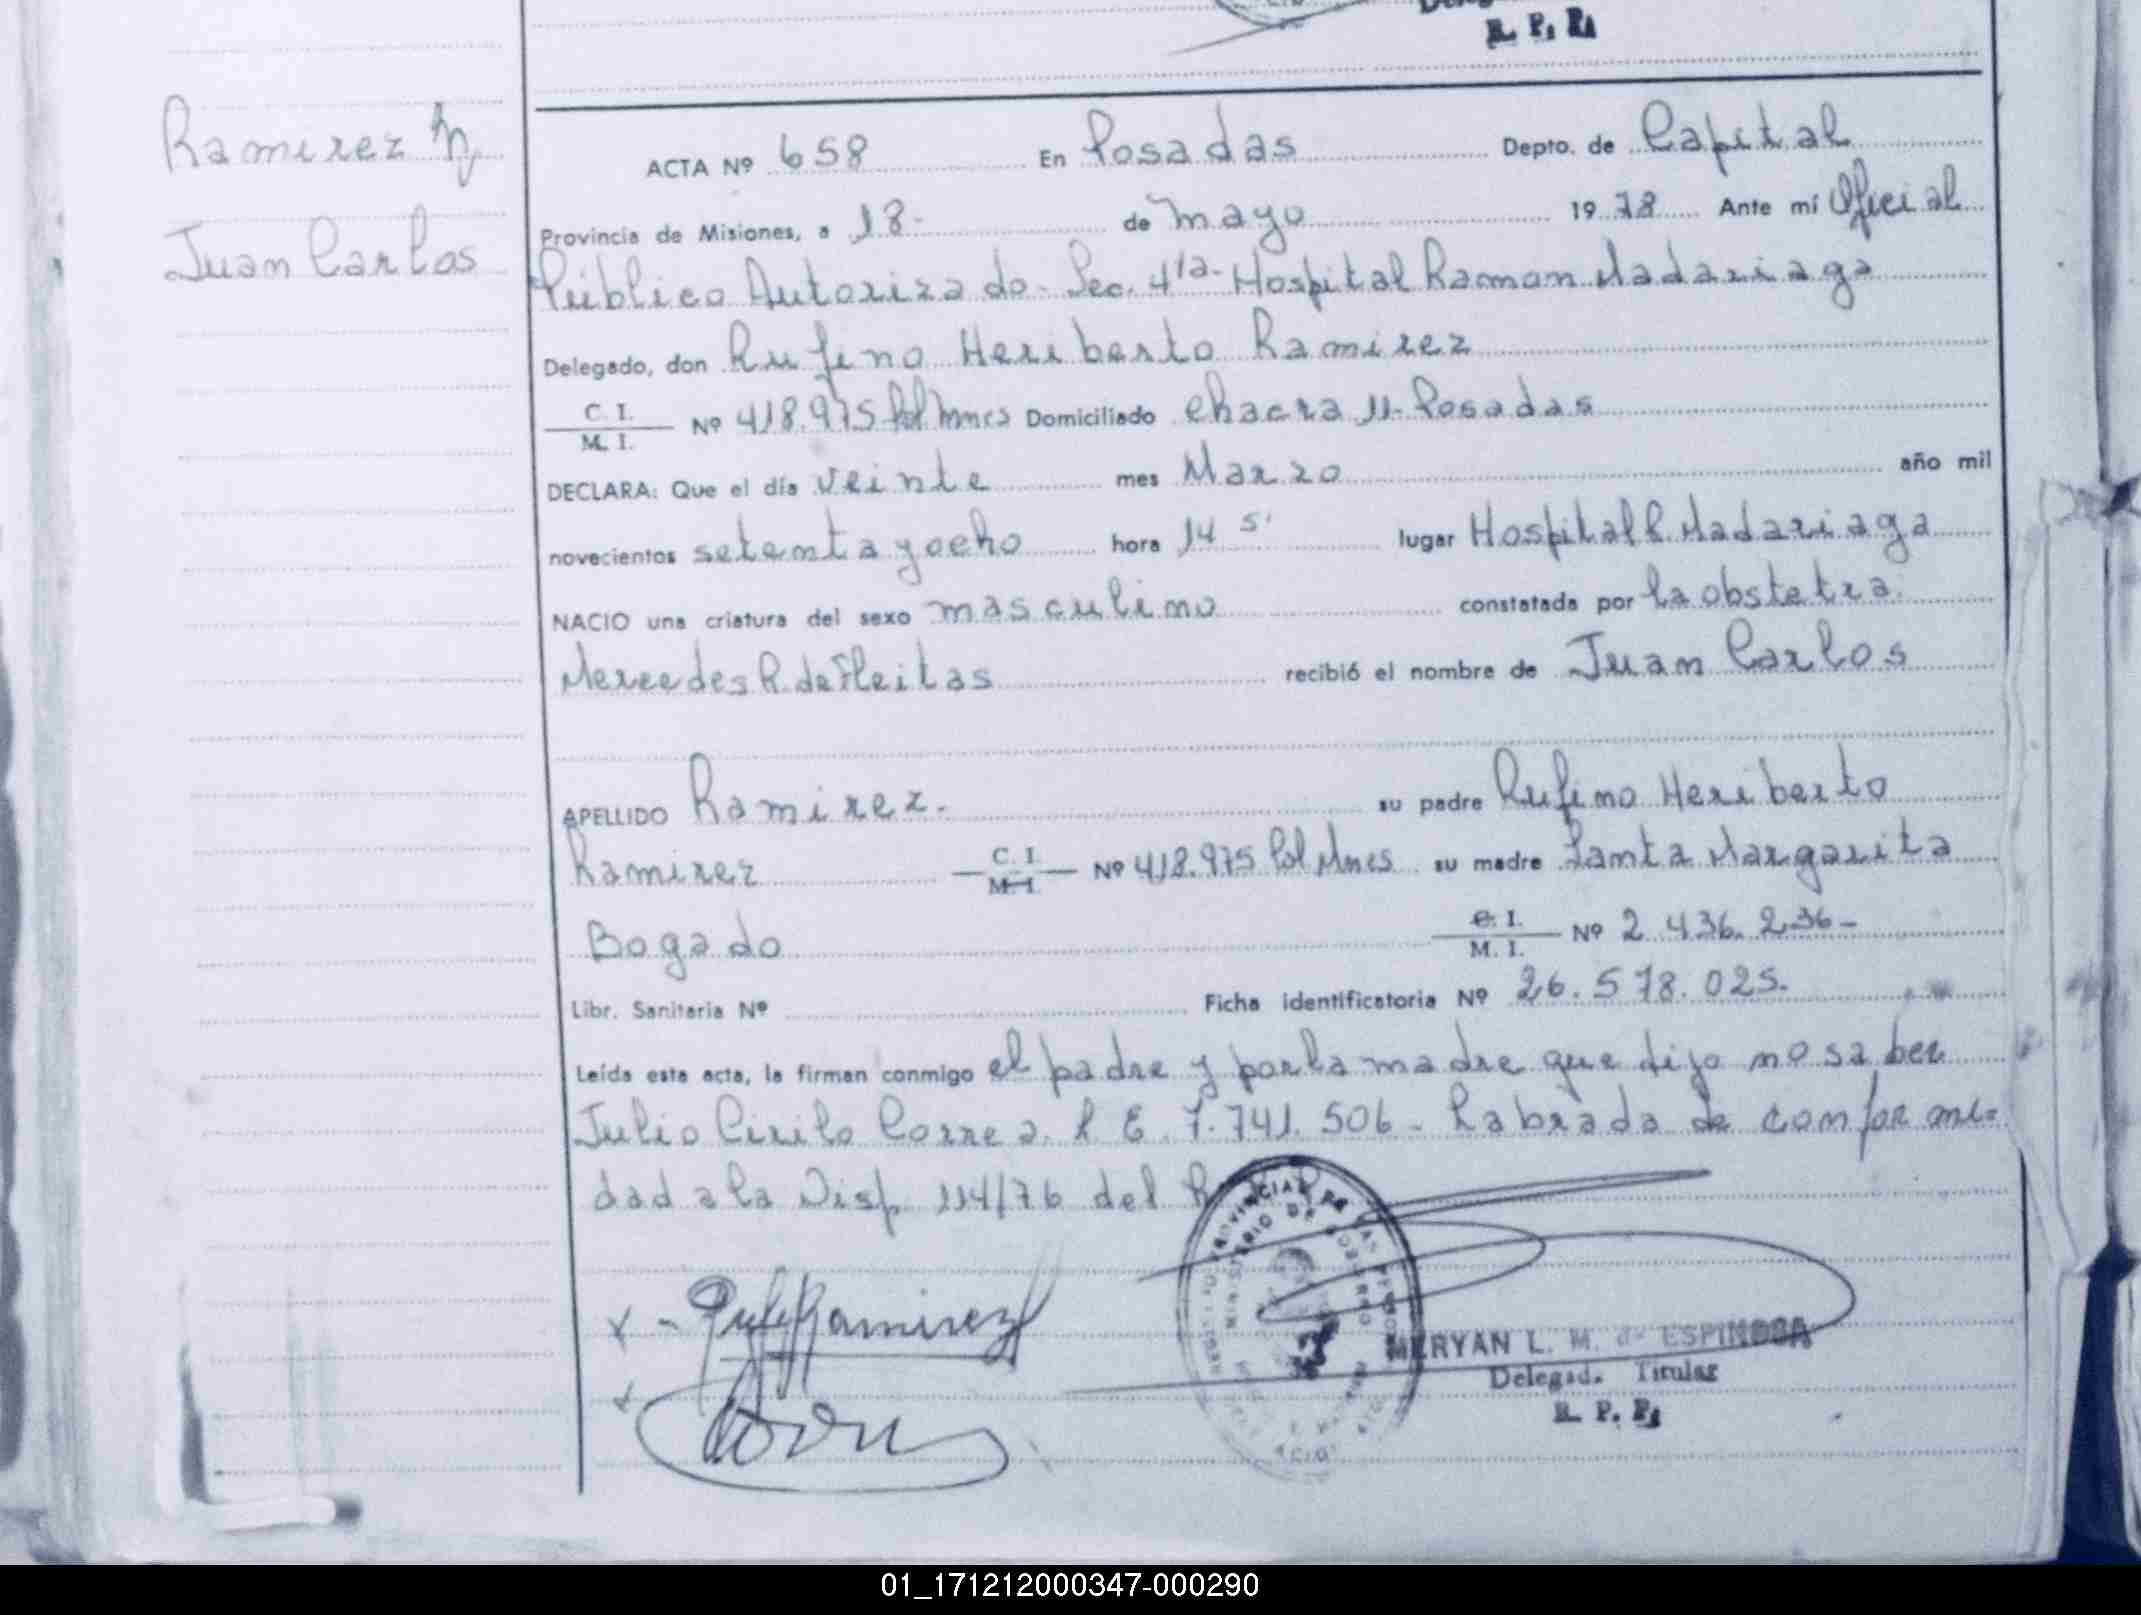 R. P. P.
Ramirez
Juan Carlos
ACTA Nº 658 En Posadas Depto. de Capital
Provincia de Misiones, a 18- de mayo 1978 Ante mí Oficial
Público Autorizado- Sec. 4ta- Hospital Ramon Madariaga
Delegado, don Rufino Heriberto Ramirez
C. I.
M. I. Nº 418.975 Pol Mnes Domiciliado Chacra 11- Posadas
DECLARA: Que el día veinte mes Marzo año mil
novecientos setenta y ocho hora 14 5' lugar Hospital R. Madariaga
NACIO una criatura del sexo masculino constatada por la obstetra
Mercedes R. de Fleitas recibió el nombre de Juan Carlos
APELLIDO Ramirez. su padre Rufino Heriberto
Ramirez C. I. M. I. Nº 418.975 Pol Mnes su madre Santa Margarita
Bogado C. I. M. I. Nº 2.436.236-
Libr. Sanitaria Nº Ficha identificatoria Nº 26.578.025.
Leída esta acta, la firman conmigo el padre y por la madre que dijo no saber
Julio Cirilo Correa. L E. 7.741.506- Labrada de conformi=
dad a la Disp. 114/76 del R
Ramirez
MERYAN L. M. de ESPINOSA
Delegad. Titular
R. P. P.
01_171212000347-000290